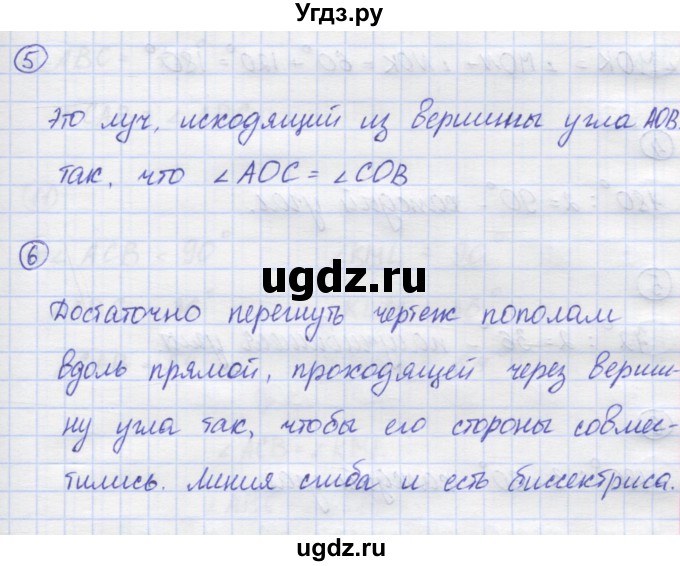 Угдз.ру
5
Это луч, исходящий из вершины угла АОВ
так, что ∠АОС = ∠СОВ
6
ugdz.ru
Достаточно перегнуть чертеж пополам
вдоль прямой, проходящей через верши-
ну угла так, чтобы его стороны совме-
тились. Линия сгиба и есть биссектриса.
ugdz.ru